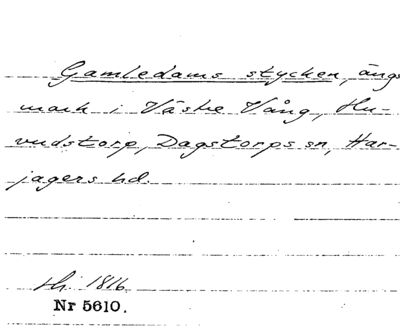 Gamledams stycken, ängs
mark i Västre Vång, Hu-
vudstorp, Dagstorps sn, Har-
jagers hd.
1816
Nr 5610.